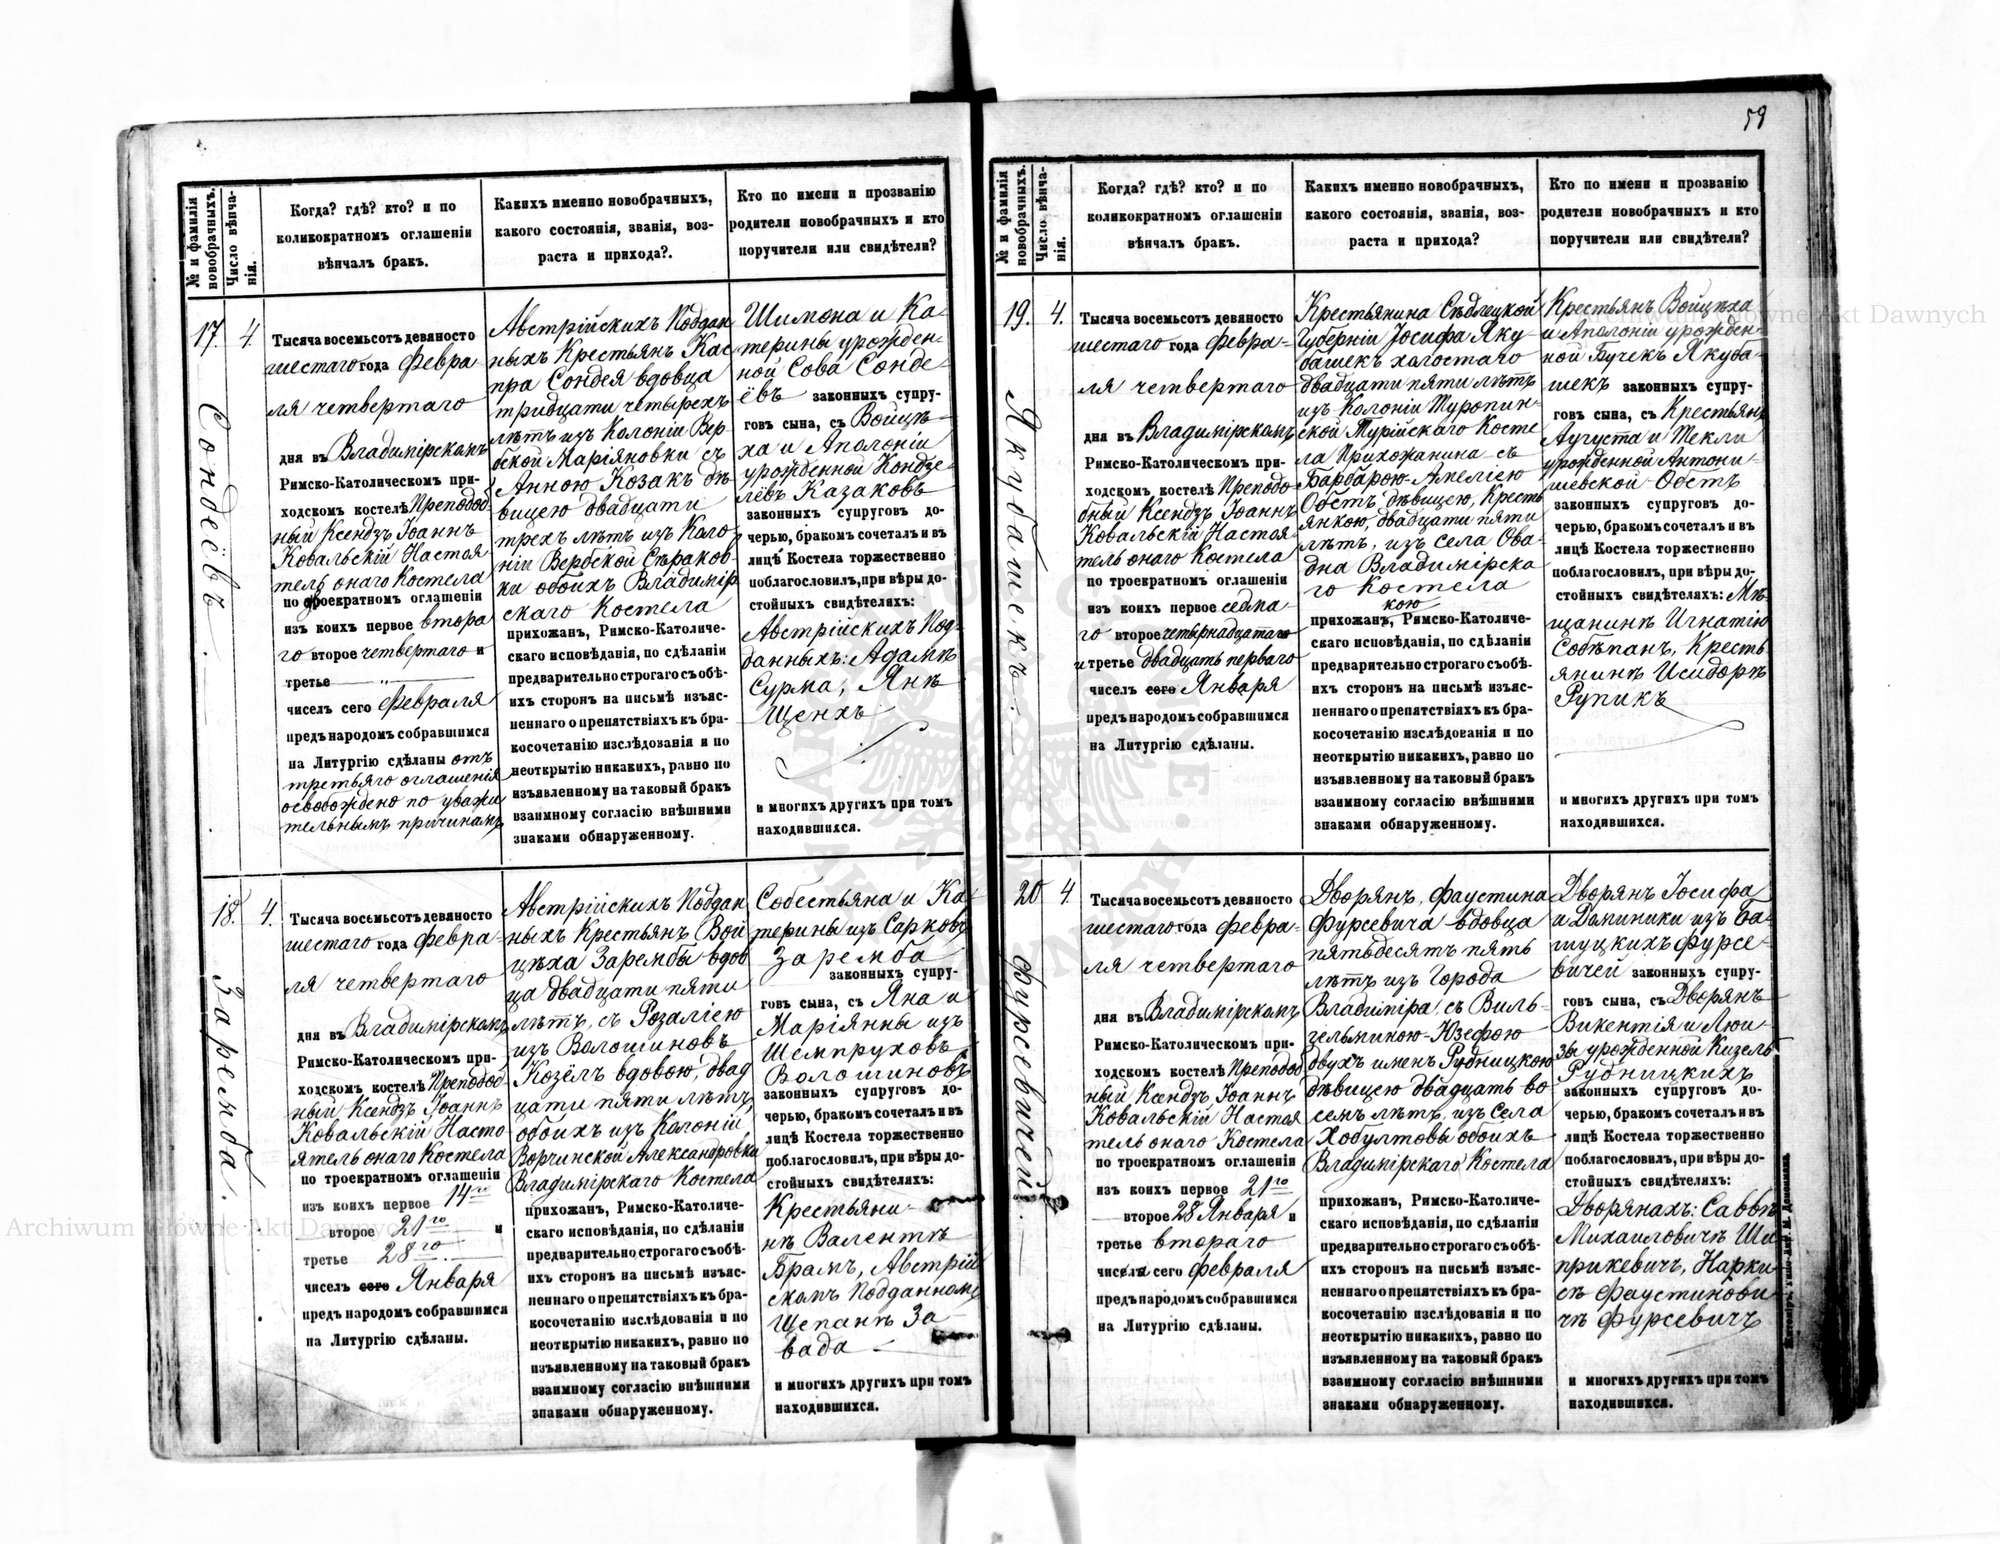 59
№ и фамилія новобрачныхъ.
Число вѣнча-
нія.
Когда? гдѣ? кто? и по
коликократномъ оглашеніи
вѣнчалъ бракъ.
Какихъ именно новобрачныхъ,
какого состоянія, званія, воз-
раста и прихода?.
Кто по имени и прозванію
родители новобрачныхъ и кто
поручители или свидѣтели?
17.
4.
Сондеёвъ.
Тысяча восемьсотъ девяносто
шестаго года Февра
ля четвертаго
дня въ Владимірскомъ
Римско-Католическомъ при-
ходскомъ костелѣ Преподоб
ный Ксендзъ Іоаннъ
Ковальскій Настоя
тель онаго Костела
по троекратномъ оглашеніи
изъ коихъ первое втора
го второе четвертаго и
третье — „ —
чиселъ сего Февраля
предъ народомъ собравшимся
на Литургію сдѣланы отъ
третьяго оглашенія
освобождено по уважи
тельнымъ причинамъ
Австрійскихъ Поддан
ныхъ Крестьянъ Кас
пра Сондея вдовца
тридцати четырехъ
лѣтъ изъ Колоніи Вер
бской Маріяновки съ
Анною Козакъ дѣ
вицею двадцати
трехъ лѣтъ изъ Коло
ніи Вербской Сѣраков
ки обоихъ Владимір
скаго Костела
прихожанъ, Римско-Католиче-
скаго исповѣданія, по сдѣланіи
предварительно строгаго съ обѣ-
ихъ сторонъ на письмѣ изъяс-
неннаго о препятствіяхъ къ бра-
косочетанію изслѣдованія и по
неоткрытію никакихъ, равно по
изъявленному на таковый бракъ
взаимному согласію внѣшними
знаками обнаруженному.
Шимона и Ка-
терины урожден-
ной Сова Сонде-
ёвъ законныхъ супру-
говъ сына, съ Войцѣ-
ха и Аполоніи
урожденной Кондзе-
лёвъ Казаковъ
законныхъ супруговъ до-
черью, бракомъ сочеталъ и въ
лицѣ Костела торжественно
поблагословилъ, при вѣры до-
стойныхъ свидѣтеляхъ:
Австрійскихъ Под-
данныхъ: Адамѣ
Сурма, Янѣ
Щенхъ
и многихъ другихъ при томъ
находившихся.
18.
4.
Заремба.
Тысяча восемьсотъ девяносто
шестаго года Февра-
ля четвертаго
дня въ Владимірскомъ
Римско-Католическомъ при-
ходскомъ костелѣ Преподоб
ный Ксендзъ Іоаннъ
Ковальскій Насто-
ятель онаго Костела
по троекратномъ оглашеніи
изъ коихъ первое 14го
второе 21го и
третье 28го
чиселъ сего Января
предъ народомъ собравшимся
на Литургію сдѣланы.
Австрійскихъ Поддан
ныхъ Крестьянъ Вой
цѣха Зарембы вдов
ца двадцати пяти
лѣтъ, съ Розаліею
изъ Волошиновъ
Козёлъ вдовою, двад
цати пяти лѣтъ
обоихъ изъ Колоніи
Ворчинской Александровки
Владимірскаго Костела
прихожанъ, Римско-Католиче-
скаго исповѣданія, по сдѣланіи
предварительно строгаго съ обѣ-
ихъ сторонъ на письмѣ изъяс-
неннаго о препятствіяхъ къ бра-
косочетанію изслѣдованія и по
неоткрытію никакихъ, равно по
изъявленному на таковый бракъ
взаимному согласію внѣшними
знаками обнаруженному.
Собестьяна и Ка-
терины изъ Сарковъ
Заремба
законныхъ супру-
говъ сына, съ Яна и
Маріянны изъ
Шемпруховъ
Волошиновъ
законныхъ супруговъ до-
черью, бракомъ сочеталъ и въ
лицѣ Костела торжественно
поблагословилъ, при вѣры до-
стойныхъ свидѣтеляхъ:
Крестьяни-
нѣ Валентѣ
Брамъ, Австрій
скомъ Подданномъ
Щепанѣ За-
вада
и многихъ другихъ при томъ
находившихся.
№ и фамилія новобрачныхъ.
Число вѣнча-
нія.
Когда? гдѣ? кто? и по
коликократномъ оглашеніи
вѣнчалъ бракъ.
Какихъ именно новобрачныхъ,
какого состоянія, званія, воз-
раста и прихода?
Кто по имени и прозванію
родители новобрачныхъ и кто
поручители или свидѣтели?
19.
4.
Якубашекъ.
Тысяча восемьсотъ девяносто
шестаго года Февра-
ля четвертаго
дня въ Владимірскомъ
Римско-Католическомъ при-
ходскомъ костелѣ Преподо
бный Ксендзъ Іоаннъ
Ковальскій Настоя-
тель онаго Костела
по троекратномъ оглашеніи
изъ коихъ первое седма-
го второе четырнадцатаго
и третье двадцать перваго
чиселъ сего Января
предъ народомъ собравшимся
на Литургію сдѣланы.
Крестьянина Сѣдлецкой
Губерніи Іосифа Яку-
башекъ холостаго
двадцати пяти лѣтъ
изъ Колоніи Туропин-
ской Турійскаго Косте
ла Прихожанина съ
Барбарою-Амеліею
Обстъ дѣвицею, Кресть
янкою, двадцати пяти
лѣтъ, изъ села Ова-
дна Владимірска
го Костела
кою
прихожанъ, Римско-Католиче-
скаго исповѣданія, по сдѣланіи
предварительно строгаго съ обѣ-
ихъ сторонъ на письмѣ изъяс-
неннаго о препятствіяхъ къ бра-
косочетанію изслѣдованія и по
неоткрытію никакихъ, равно по
изъявленному на таковый бракъ
взаимному согласію внѣшними
знаками обнаруженному.
Крестьянъ Войцѣха
и Аполоніи урожден-
ной Бучекъ Якуба-
шекъ законныхъ супру-
говъ сына, съ Крестьянъ
Аугуста и Текли
урожденной Антони-
шевской Обстъ
законныхъ супруговъ до-
черью, бракомъ сочеталъ и въ
лицѣ Костела торжественно
поблагословилъ, при вѣры до-
стойныхъ свидѣтеляхъ: Мѣ-
щанинѣ Игнатію
Собѣпан, Кресть
янинѣ Исидорѣ
Рупикъ
и многихъ другихъ при томъ
находившихся.
20
4.
Фурсевичей.
Тысяча восемьсотъ девяносто
шестаго года Февра-
ля четвертаго
дня въ Владимірскомъ
Римско-Католическомъ при-
ходскомъ костелѣ Преподоб
ный Ксендзъ Іоаннъ
Ковальскій Настоя
тель онаго Костела
по троекратномъ оглашеніи
изъ коихъ первое 21го
второе 28 Января и
третье втораго
числа сего Февраля
предъ народомъ собравшимся
на Литургію сдѣланы.
Дворянъ, Фаустина
Фурсевича вдовца
пятьдесятъ пять
лѣтъ изъ Города
Владиміра, съ Виль-
гельминою-Юзефою
двухъ именъ Рудницкою
дѣвицею двадцать во
семъ лѣтъ, изъ села
Хобултовы обоихъ
Владимірскаго Костела
прихожанъ, Римско-Католиче-
скаго исповѣданія, по сдѣланіи
предварительно строгаго съ обѣ-
ихъ сторонъ на письмѣ изъяс-
неннаго о препятствіяхъ къ бра-
косочетанію изслѣдованія и по
неоткрытію никакихъ, равно по
изъявленному на таковый бракъ
взаимному согласію внѣшними
знаками обнаруженному.
Дворянъ Іосифа
и Доминики изъ Ба-
шуцкихъ Фурсе-
вичей законныхъ супру-
говъ сына, съ Дворянъ
Викентія и Люи-
зы урожденной Кизель
Рудницкихъ
законныхъ супруговъ до-
черью, бракомъ сочеталъ и въ
лицѣ Костела торжественно
поблагословилъ, при вѣры до-
стойныхъ свидѣтеляхъ:
Дворянахъ: Саввѣ
Михаиловичъ Ши-
прикевичъ, Нарки-
съ Фаустинови
чъ Фурсевичъ
и многихъ другихъ при томъ
находившихся.
Archiwum Główne Akt Dawnych
Archiwum Główne Akt Dawnych